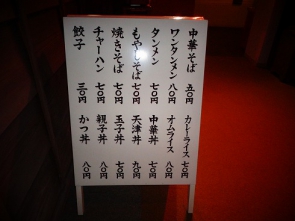 中華そば 五〇円
ワンタンメン 八〇円
タンメン 七〇円
もやしそば 七〇円
焼きそば 七〇円
チャーハン 七〇円
餃子 三〇円
カレーライス 七〇円
オムライス 八〇円
中華丼 七〇円
天津丼 九〇円
玉子丼 七〇円
親子丼 八〇円
かつ丼 八〇円